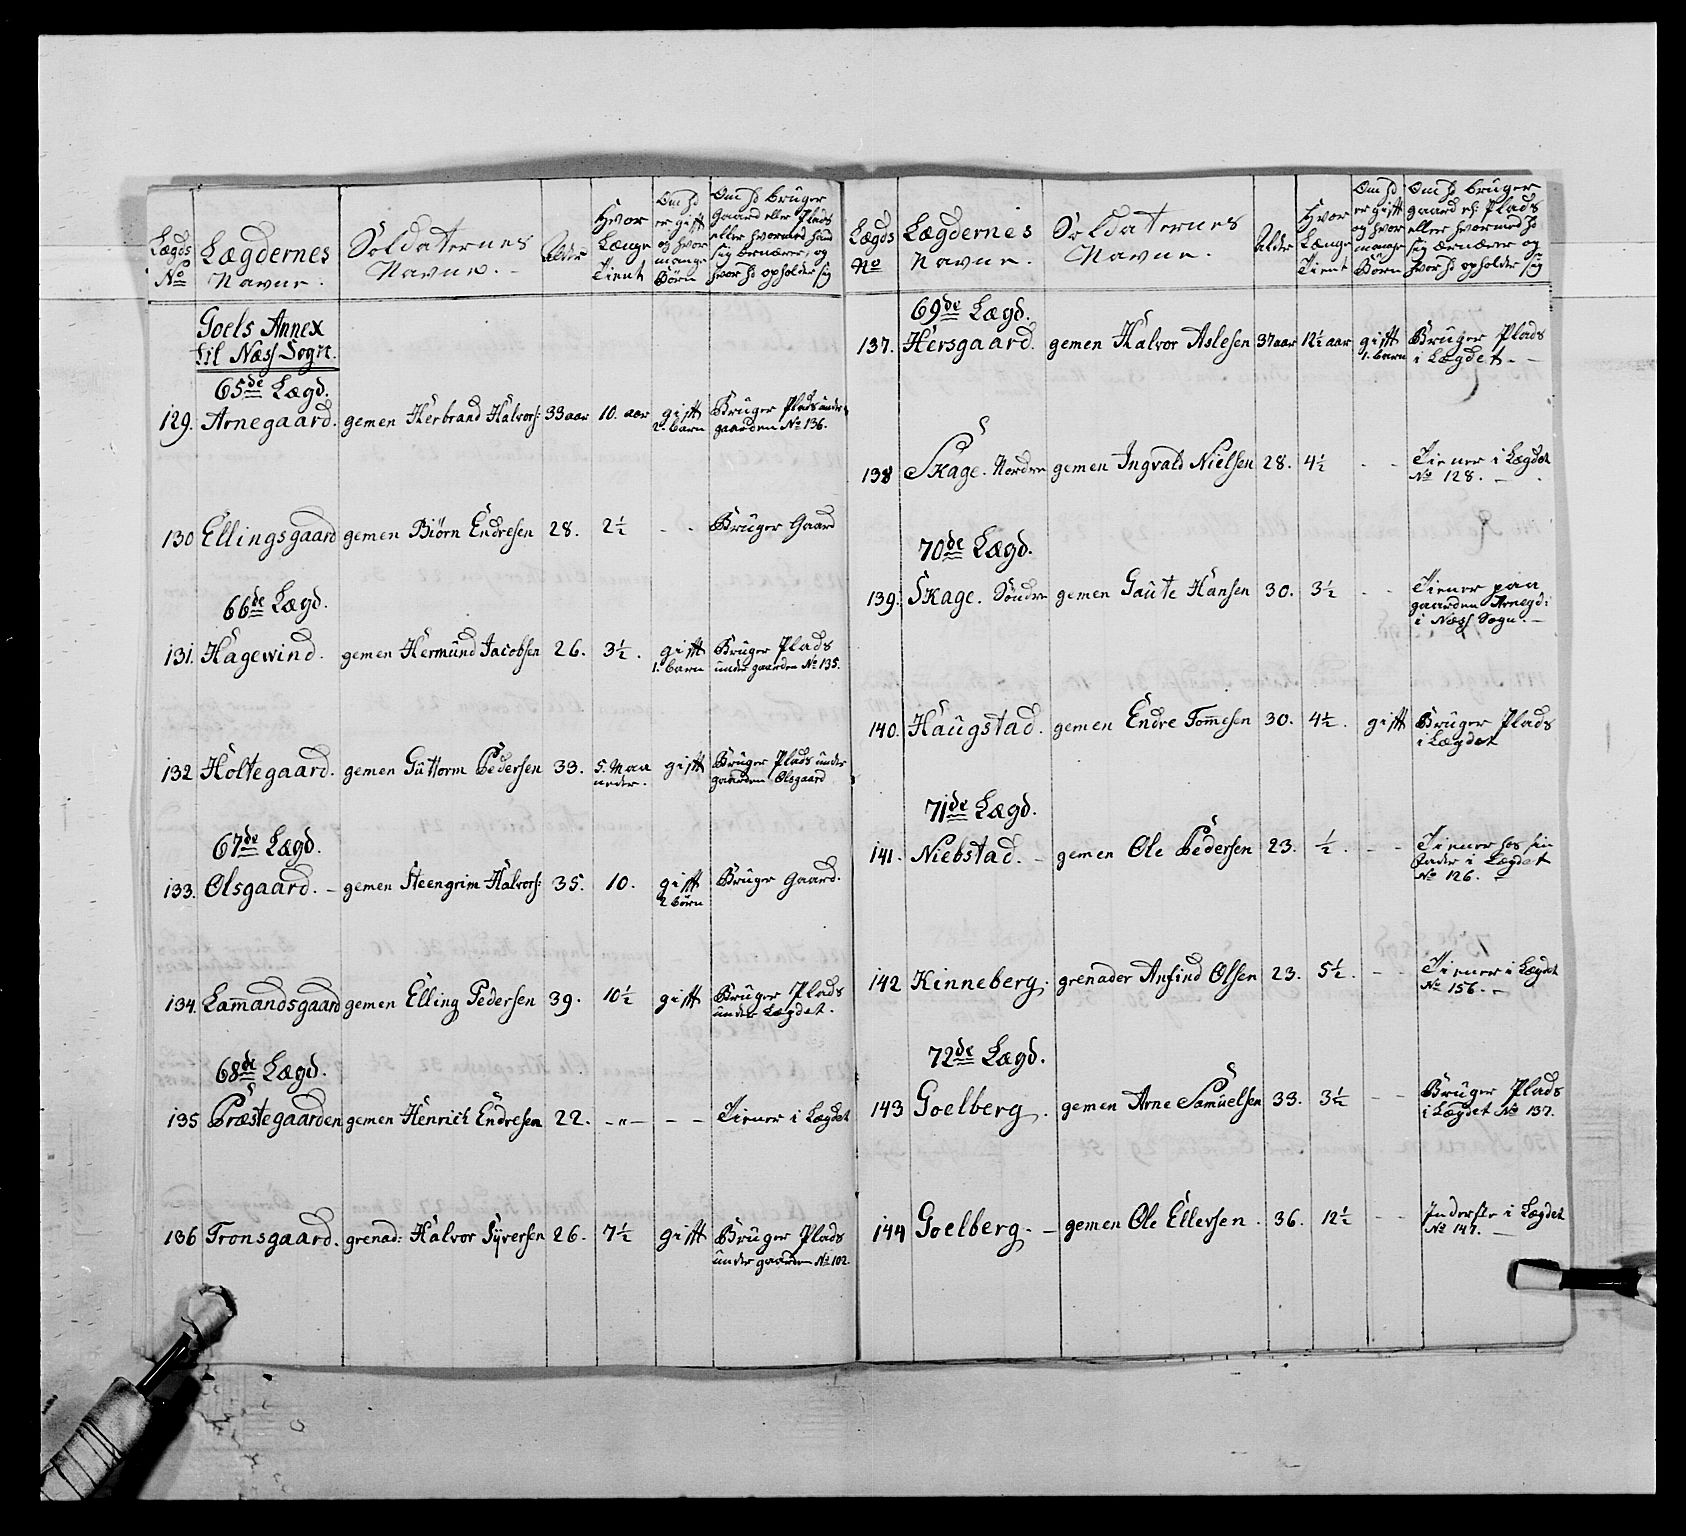 Lægds No
Lægdernes Navne.
Soldaternes Navne.
Alder
Hvor Længe Tient
Om hd er gift og hvor mange Börn
Om hd bruger Gaard eller Plads eller hvormed hand sig ernærer, og hvor hd opholder sig
Goels Annex
til Næss Sogn.
65de Lægd.
129. Arnegaard. gemen Herbrand Halvors: 33 aar 10. aar gift 2. barn Bruger Plads under gaarden No 136.
130 Ellingsgaard gemen Biörn Endresen 28. 2½ - - Bruger Gaard
66de Lægd.
131. Hagewind. gemen Hermund Jacobsen 26. 3½. gift 1. barn Bruger Plads under gaarden No 135.
132 Holtegaard. gemen Guttorm Pedersen 33. 5. Maa neder. gift Bruger Plads under gaarden Olsgaard
67de Lægd.
133. Olsgaard. - gemen Steengrim Halvors: 35. 10. gift 2 börn Bruger Gaard.
134. Lamandsgaard gemen Elling Pedersen 39. 10½ gift Bruger Plads under Lægdet.
68de Lægd.
135 Præstegaarden gemen Henrich Endresen 22. -"- - - Tiener i Lægdet
136 Tronsgaard. grenad: Halvor Syversen 26. 7½ gift Bruger Plads under gaarden No 102.
Lægds No
Lægdernes Navne.
Soldaternes Navne.
Alder
Hvor Længe Tient
Om hd er gift og hvor mange Börn
Om hd bruger gaard el: Plads eller hvormed hd sig ernærer og hvor hd opholder sig
69de Lægd.
137. Hersgaard. gemen Halvor Aslesen 37 aar 12½ aar gift 1. barn Bruger Plads i Lægdet. - -
138 Skage. Nordre gemen Ingvald Nielsen 28. 4½ - - Tiener i Lægdet No 128. -
70de Lægd.
139. Skage. Söndre gemen Gaute Hansen 30. 3½ - - Tiener paa gaarden Arnegd: i Næss Sogn. -
140. Haugstad. gemen Endre Tomesen 30. 4½. gift Bruger Plads i Lægdet
71de Lægd.
141. Niebstad. - gemen Ole Pedersen 23. ½. - - Tiener hos sin Fader i Lægdet No 126. -
142 Kinneberg. grenader Anfind Olsen 23. 5½. - - Tiener i Lægdet No 156. -
72de Lægd.
143 Goelberg. gemen Arne Samuelsen 33. 3½ - - Bruger Plads i Lægdet No 137.
144 Goelberg. - gemen Ole Ellevsen. 36. 12½ - - Inderste i Lægdet No 147. -